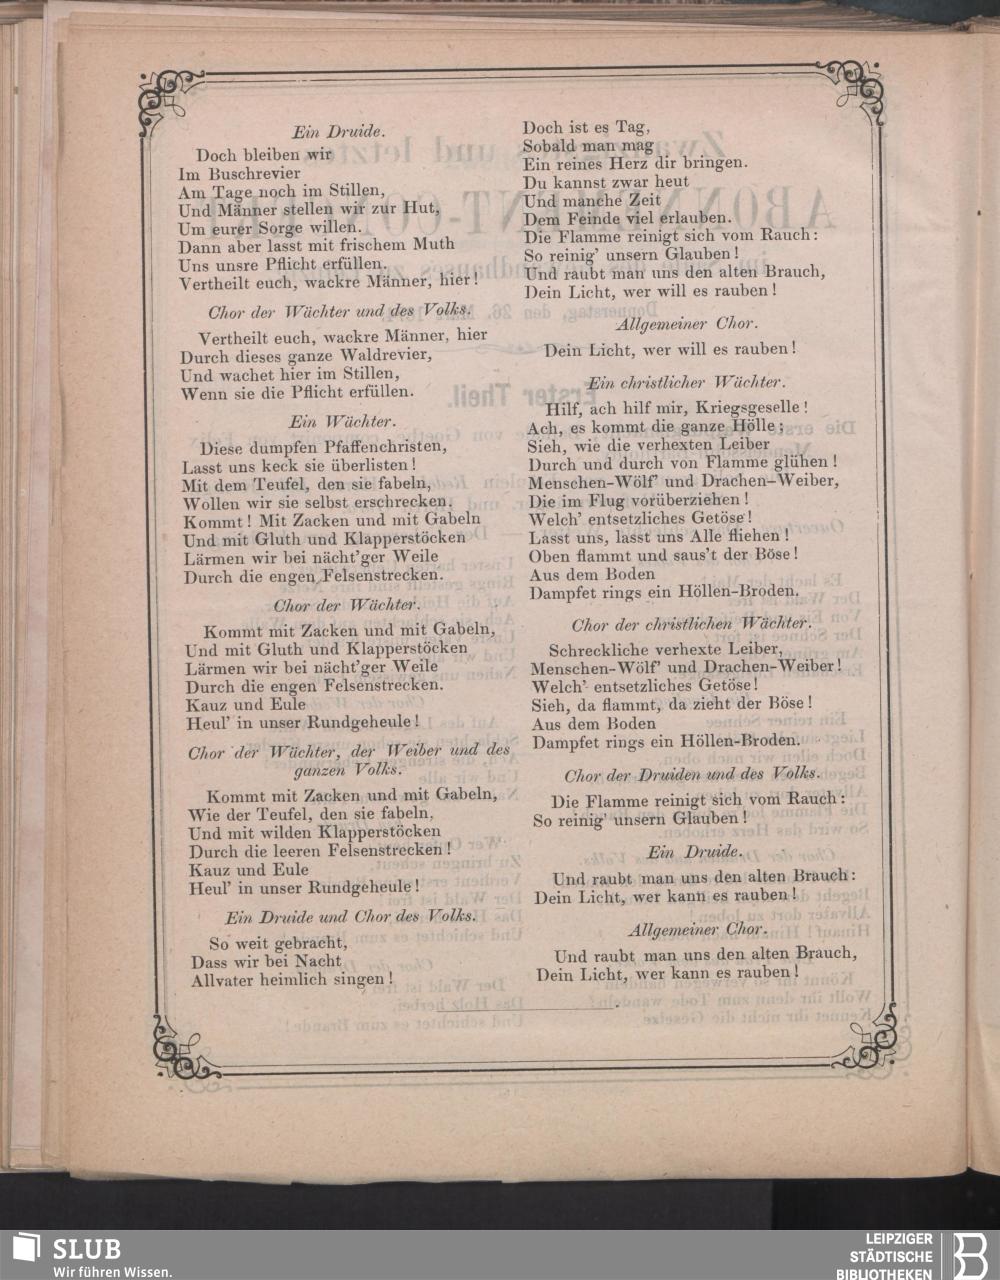 Ein Druide.
Doch bleiben wir
Im Buschrevier
Am Tage noch im Stillen,
Und Männer stellen wir zur Hut,
Um eurer Sorge willen.
Dann aber lasst mit frischem Muth
Uns unsre Pflicht erfüllen.
Vertheilt euch, wackre Männer, hier!
Chor der Wächter und des Volks.
Vertheilt euch, wackre Männer, hier
Durch dieses ganze Waldrevier,
Und wachet hier im Stillen,
Wenn sie die Pflicht erfüllen.
Ein Wächter.
Diese dumpfen Pfaffenchristen,
Lasst uns keck sie überlisten!
Mit dem Teufel, den sie fabeln,
Wollen wir sie selbst erschrecken.
Kommt! Mit Zacken und mit Gabeln
Und mit Gluth und Klapperstöcken
Lärmen wir bei nächt'ger Weile
Durch die engen Felsenstrecken.
Chor der Wächter.
Kommt mit Zacken und mit Gabeln,
Und mit Gluth und Klapperstöcken
Lärmen wir bei nächt'ger Weile
Durch die engen Felsenstrecken.
Kauz und Eule
Heul' in unser Rundgeheule!
Chor der Wächter, der Weiber und des
ganzen Volks.
Kommt mit Zacken und mit Gabeln,
Wie der Teufel, den sie fabeln,
Und mit wilden Klapperstöcken
Durch die leeren Felsenstrecken!
Kauz und Eule
Heul' in unser Rundgeheule!
Ein Druide und Chor des Volks.
So weit gebracht,
Dass wir bei Nacht
Allvater heimlich singen!
Doch ist es Tag,
Sobald man mag
Ein reines Herz dir bringen.
Du kannst zwar heut
Und manche Zeit
Dem Feinde viel erlauben.
Die Flamme reinigt sich vom Rauch:
So reinig' unsern Glauben!
Und raubt man uns den alten Brauch,
Dein Licht, wer will es rauben!
Allgemeiner Chor.
Dein Licht, wer will es rauben!
Ein christlicher Wächter.
Hilf, ach hilf mir, Kriegsgeselle!
Ach, es kommt die ganze Hölle;
Sieh, wie die verhexten Leiber
Durch und durch von Flamme glühen!
Menschen-Wölf' und Drachen-Weiber,
Die im Flug vorüberziehen!
Welch' entsetzliches Getöse!
Lasst uns, lasst uns Alle fliehen!
Oben flammt und saus't der Böse!
Aus dem Boden
Dampfet rings ein Höllen-Broden.
Chor der christlichen Wächter.
Schreckliche verhexte Leiber,
Menschen-Wölf' und Drachen-Weiber!
Welch' entsetzliches Getöse!
Sieh, da flammt, da zieht der Böse!
Aus dem Boden
Dampfet rings ein Höllen-Broden.
Chor der Druiden und des Volks.
Die Flamme reinigt sich vom Rauch:
So reinig' unsern Glauben!
Ein Druide.
Und raubt man uns den alten Brauch:
Dein Licht, wer kann es rauben!
Allgemeiner Chor.
Und raubt man uns den alten Brauch,
Dein Licht, wer kann es rauben!
SLUB
Wir führen Wissen.
LEIPZIGER
STÄDTISCHE
BIBLIOTHEKEN